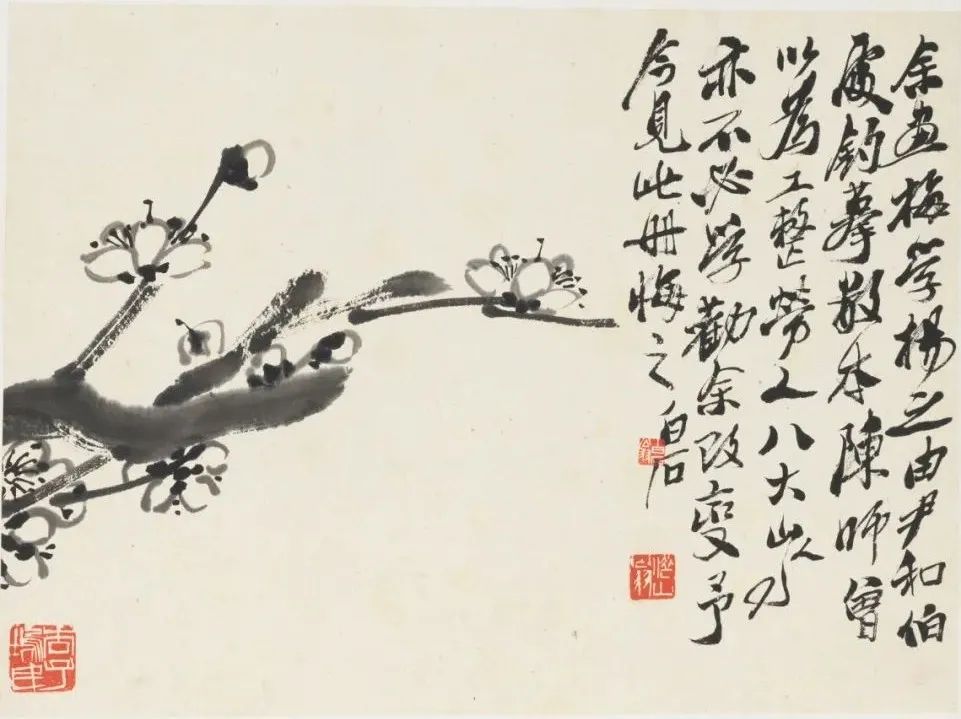 余畫梅學楊之由尹和伯
處鈎摹數本陳師曾
以為工整勞人八大山人
亦不必學勸余改變予
今見此冊悔之白石